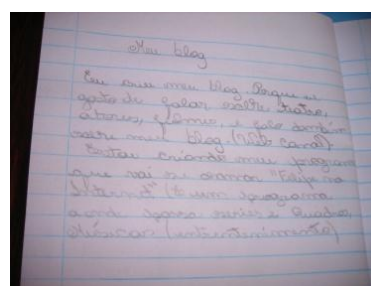 Meu blog
Eu meu blog. Porque eu
gosto de falar sobre teatro,
atores, filmes, e falo também
sobre meu blog. (Web canal)
Estou criando meu programa
que vai se chamar "Felipe na
Internet" (é um programa
aonde séries e Quadros,
Músicas (entretenimento)